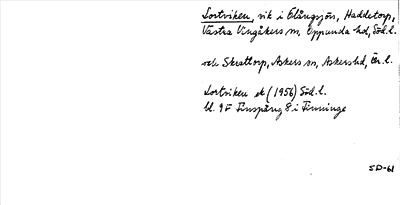 Sortviken, vik i Ölångsjön, Haddetorp,
Västra Vingåkers sn, Oppunda hd, Söd. l.
och Skrattorp, Askers sn, Askers hd, Ör. l.
Sortviken ek (1956) Söd. l.
bl. 9F Finspång 8 i Finninge
SD-61